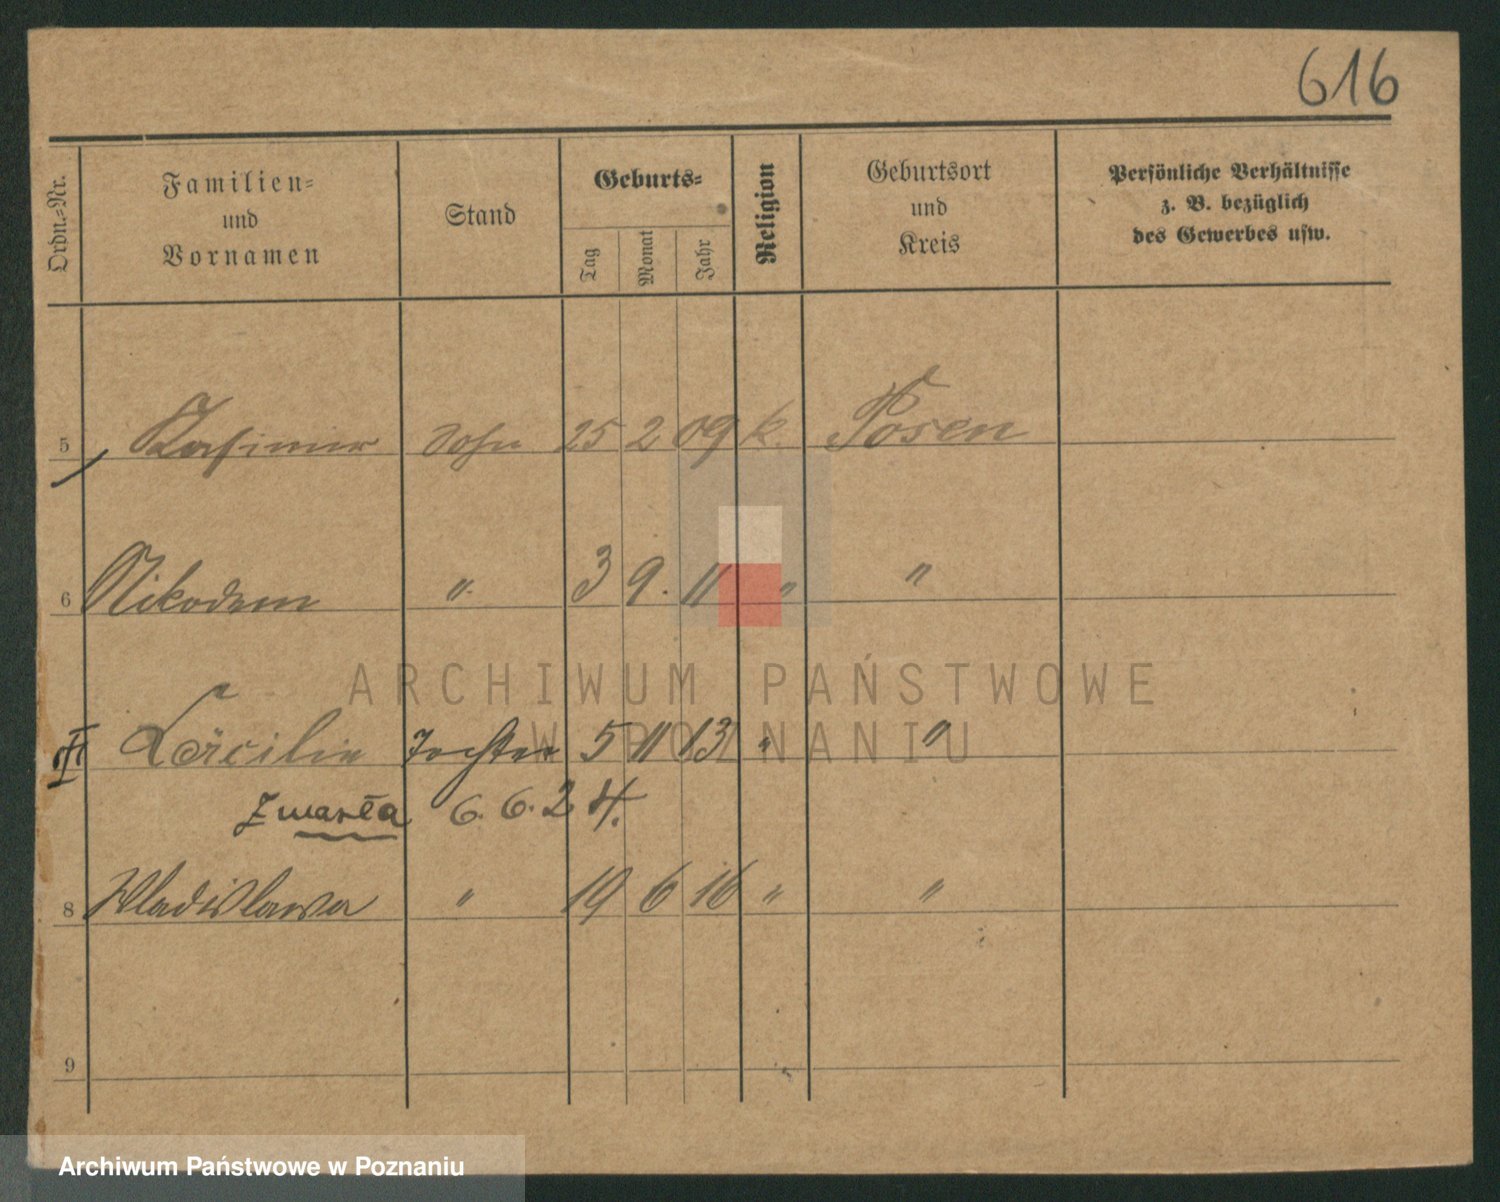 616
Ordn.-Nr.
Familien-
und
Vornamen
Stand
Geburts-
Tag
Monat
Jahr
Religion
Geburtsort
und
Kreis
Persönliche Verhältnisse
z. B. bezüglich
des Gewerbes usw.
5 Kasimir Sohn 25 2 09 k. Posen
6 Nikodem " 3 9. 11 " "
Cäcilie Tochter 5 11 13 " "
Zmarła 6. 6. 24.
8 Wladislawa " 19 6 16 " "
9
ARCHIWUM PAŃSTWOWE
W POZNANIU
Archiwum Państwowe w Poznaniu